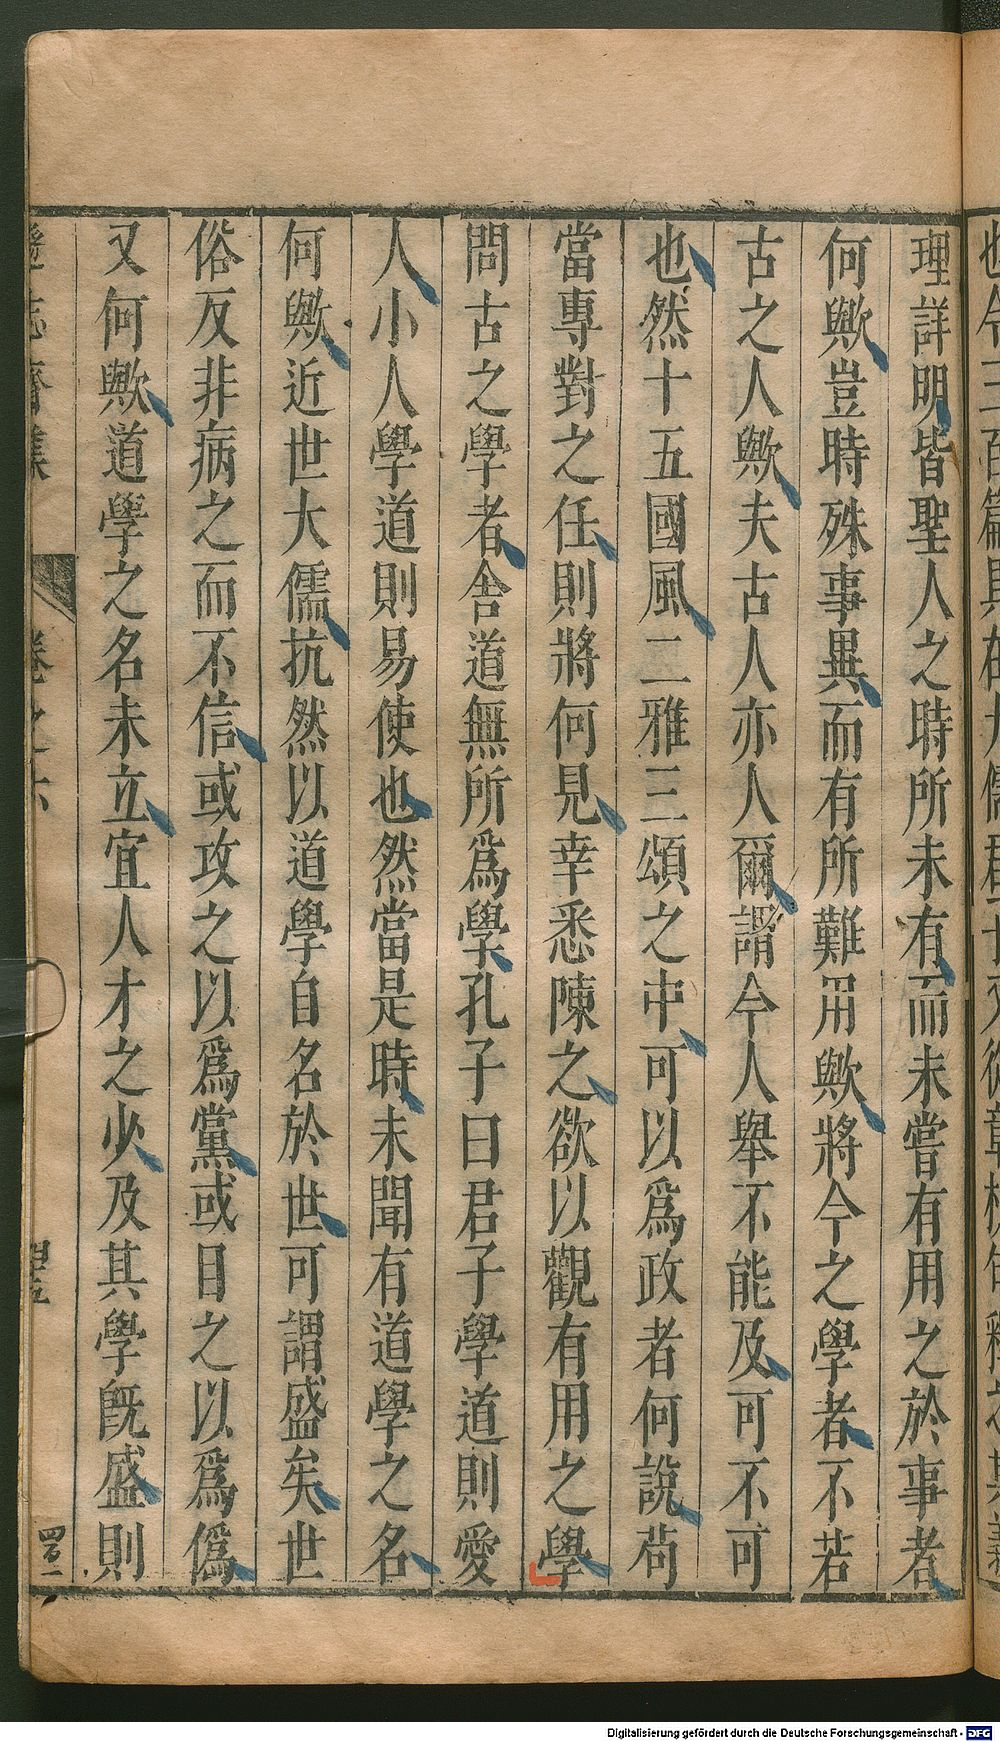 理詳明皆聖人之時所未有而未嘗有用之於事者
何歟豈時殊事異而有所難用歟將今之學者不若
古之人歟夫古人亦人爾謂今人舉不能及可不可
也然十五國風二雅三頌之中可以爲政者何說苟
當專對之任則將何見幸悉陳之欲以觀有用之學
問古之學者舍道無所爲學孔子曰君子學道則愛
人小人學道則易使也然當是時未聞有道學之名
何歟近世大儒抗然以道學自名於世可謂盛矣世
俗反非病之而不信或攻之以爲黨或目之以爲僞
又何歟道學之名未立宜人才之少及其學旣盛則
遜志齋集 卷之六
Digitalisierung gefördert durch die Deutsche Forschungsgemeinschaft - DFG